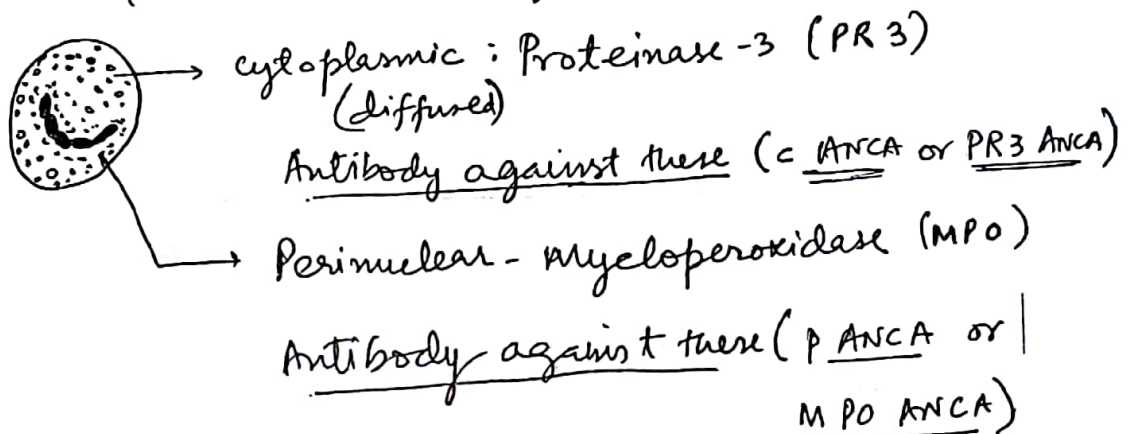 cytoplasmic : Proteinase -3 (PR 3)
(diffused)
Antibody against these (c ANCA or PR3 ANCA)
Perinuclear - Myeloperoxidase (MPO)
Antibody against these (P ANCA or
MPO ANCA)